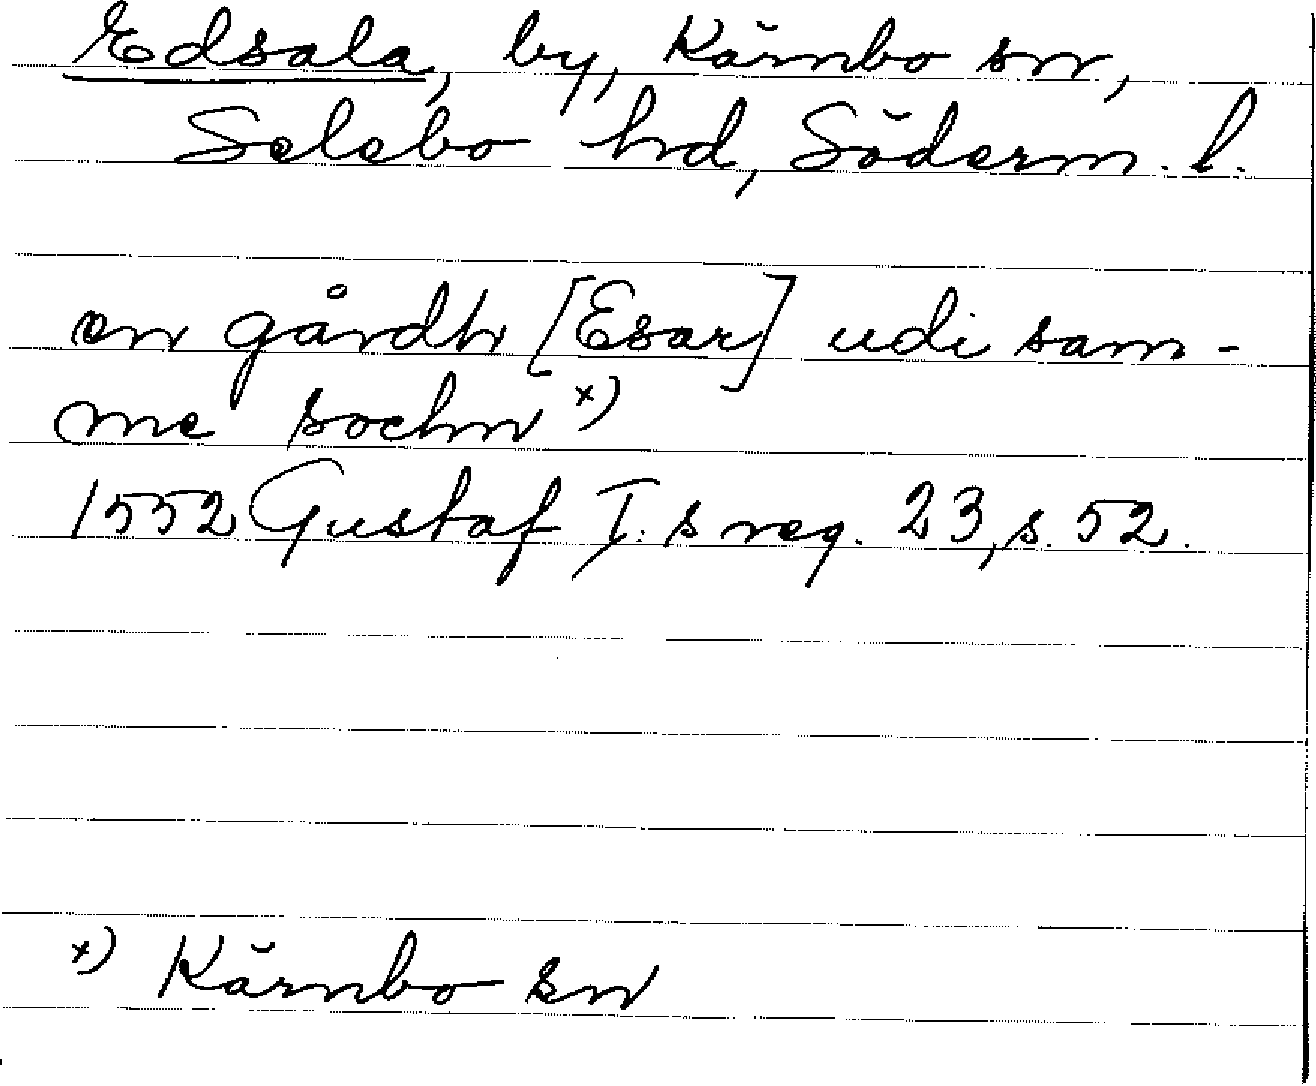 Edsala, by, Kärnbo sn,
Selebo hd, Söderm. l.
en gårdh [Esar] udi sam-
me sochn x)
1552 Gustaf I:s reg. 23, s. 52.
x) Kärnbo sn